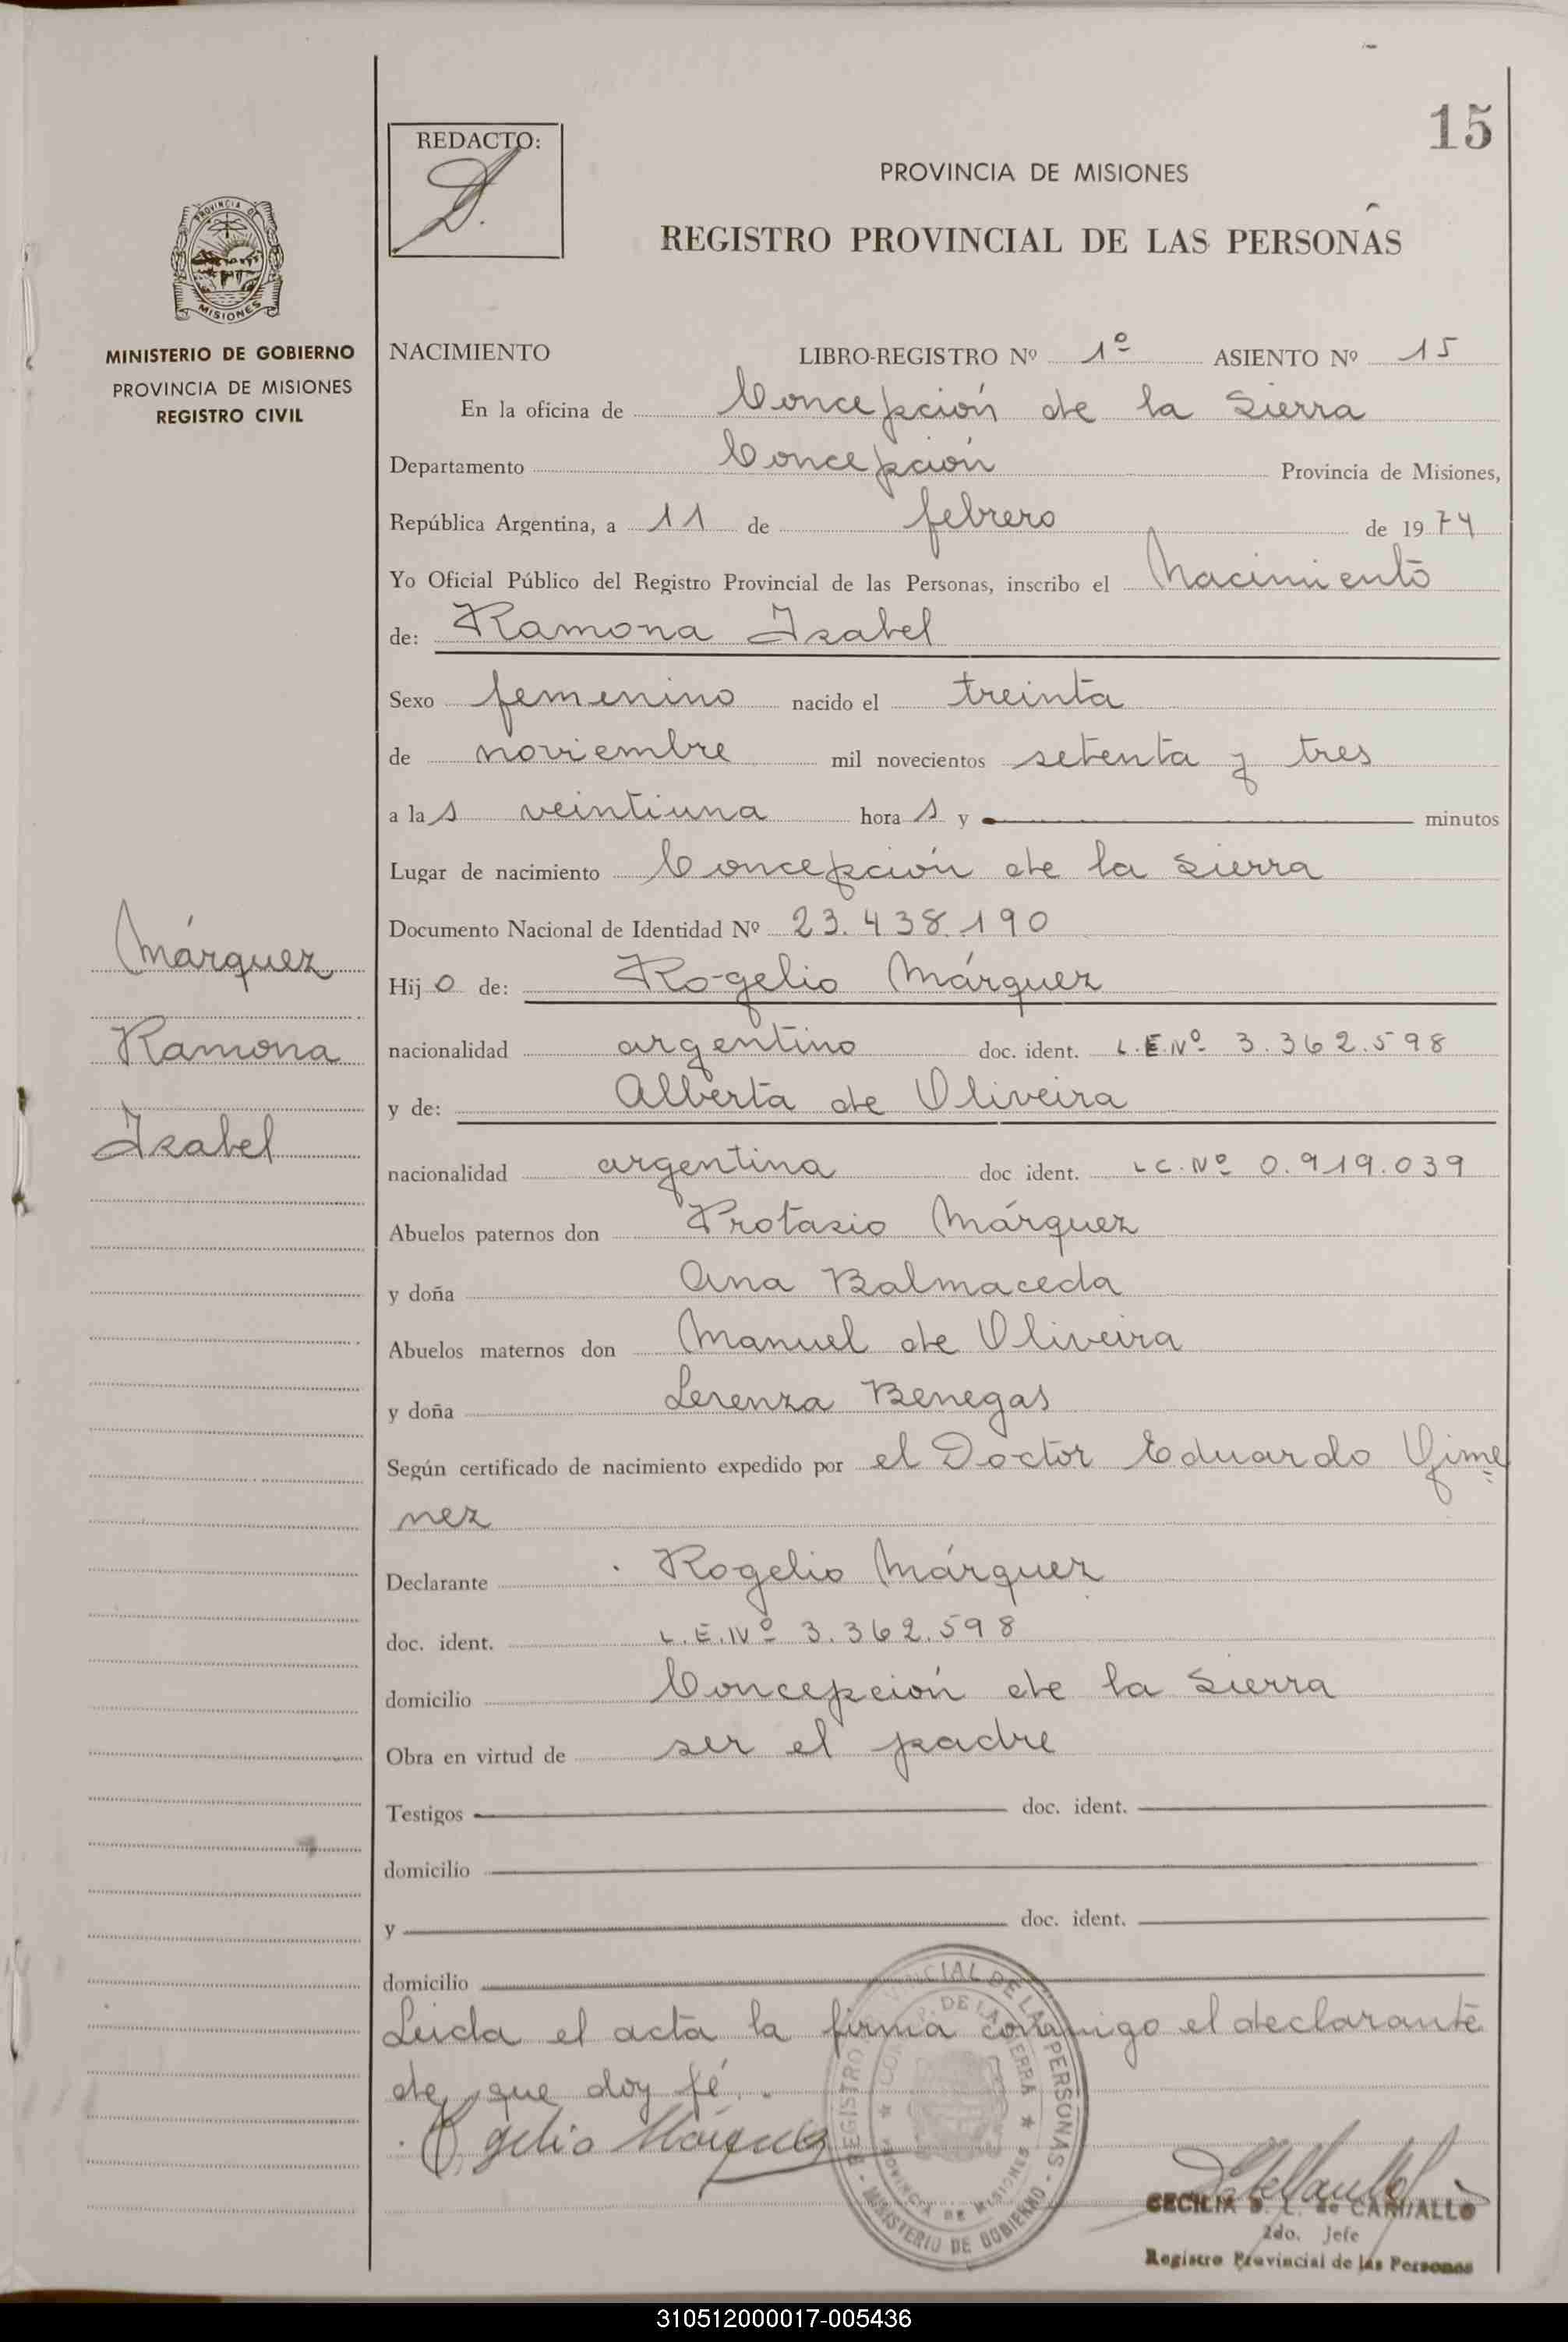 15
REDACTO:
D.
PROVINCIA DE MISIONES
REGISTRO PROVINCIAL DE LAS PERSONAS
PROVINCIA DE
MISIONES
MINISTERIO DE GOBIERNO
PROVINCIA DE MISIONES
REGISTRO CIVIL
NACIMIENTO LIBRO-REGISTRO Nº 1º ASIENTO Nº 15
En la oficina de Concepción de la Sierra
Departamento Concepción Provincia de Misiones,
República Argentina, a 11 de febrero de 1974
Yo Oficial Público del Registro Provincial de las Personas, inscribo el Nacimiento
de: Ramona Izabel
Sexo femenino nacido el treinta
de noviembre mil novecientos setenta y tres
a las veintiuna horas y minutos
Lugar de nacimiento Concepción de la Sierra
Documento Nacional de Identidad Nº 23.438.190
Márquez
Ramona
Izabel
Hijo de: Rogelio Márquez
nacionalidad argentino doc. ident. L.E.Nº 3.362.598
y de: Alberta de Oliveira
nacionalidad argentina doc ident. L.C.Nº 0.919.039
Abuelos paternos don Protasio Márquez
y doña Ana Balmaceda
Abuelos maternos don Manuel de Oliveira
y doña Lerenza Benegas
Según certificado de nacimiento expedido por el Doctor Eduardo Gime
nez
Declarante Rogelio Márquez
doc. ident. L.E.Nº 3.362.598
domicilio Concepción de la Sierra
Obra en virtud de ser el padre
Testigos doc. ident.
domicilio
y doc. ident.
domicilio
Leida el acta la firma conmigo el declarante
de que doy fé.
Rogelio Márquez
REGISTRO PROVINCIAL DE LAS PERSONAS - MINISTERIO DE GOBIERNO
DE LA SIERRA
PROVINCIA DE MISIONES
CECILIA D. L. de CARVALLO
2do. Jefe
Registro Provincial de las Personas
310512000017-005436